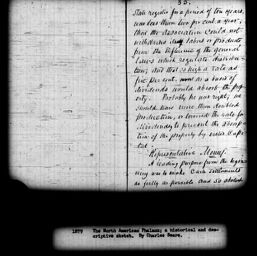 33.
State register for a period of ten years,
was less than two per cent a year;
that the association could not
withdraw any labor or product
from the influence of the general
laws which regulate distribu-
tion; and that so high a rate as
five per cent. as a basis of
dividends would absorb the prop-
erty. Probably he was right; we
should have more than doubled
production, or lowered the rate for
dividends to prevent the absorp-
tion of the property by
Representative Money.
A leading purpose from the begin-
ning was to make Cash settlements
as fully as possible and so
1879 The North American Phalanx; a historical and des-
criptive sketch. By Charles Sears.